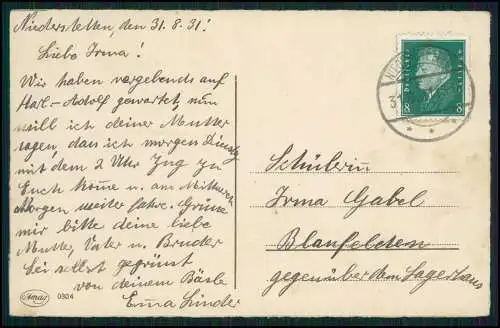 Niederstetten, den 31.8.31!
Liebe Irma!
Wir haben vergebends auf
Karl-Adolf gewartet, nun
will ich deiner Mutter
sagen, daß ich morgen Dienstg
mit dem 2 Uhr Zug zu
Euch kome u. am Mittwoch
Morgen weiter fahre. Grüße
mir bitte deine liebe
Mutter, Vater u. Bruder
Sei selbst gegrüßt
von deinem Bäsle
Emma Linder
Amag
0304
DEUTSCHES REICH
8 8
Schülerin
Irma Gabel
Blaufelden
gegenüber dem Lagerhaus